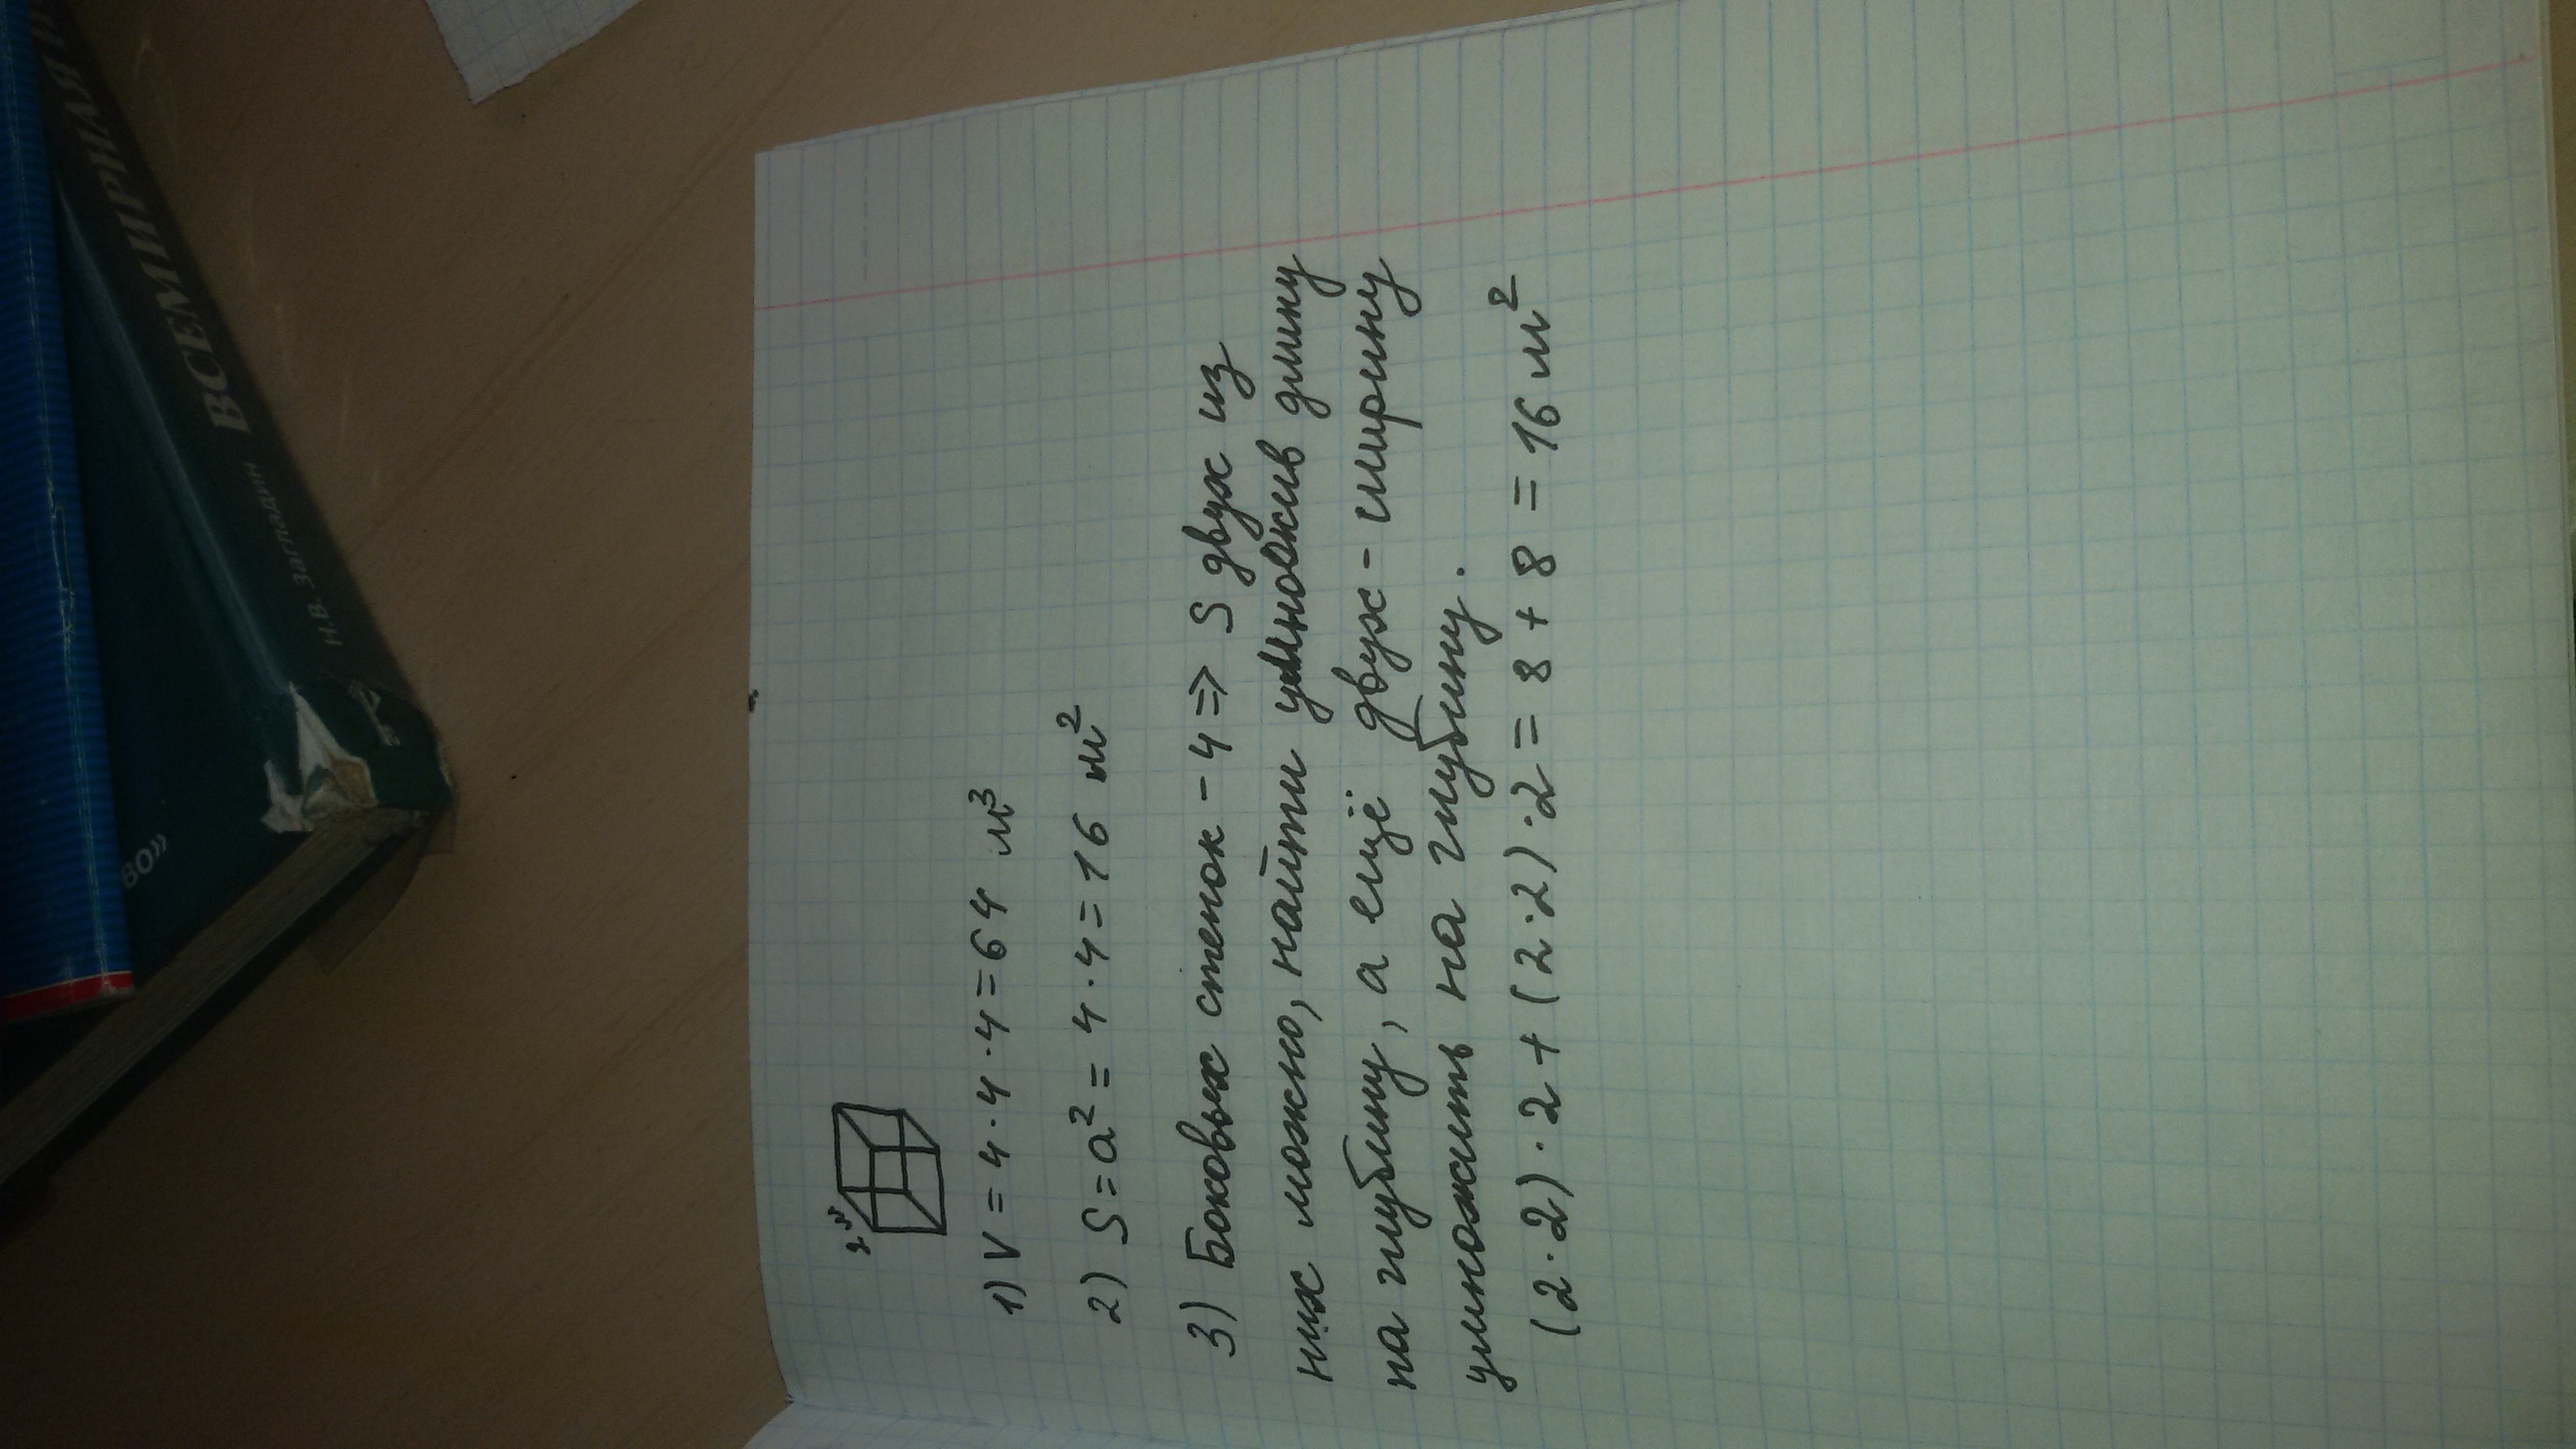 Н.В. Загладин ВСЕМИРНАЯ
ВО»
2 м
1) V = 4 · 4 · 4 = 64 м³
2) S = a² = 4 · 4 = 16 м²
3) Боковых стенок - 4 => S двух из
них можно, найти умножив длину
на глубину, а ещё двух - ширину
умножить на глубину.
(2 · 2) · 2 + (2 · 2) · 2 = 8 + 8 = 16 м²